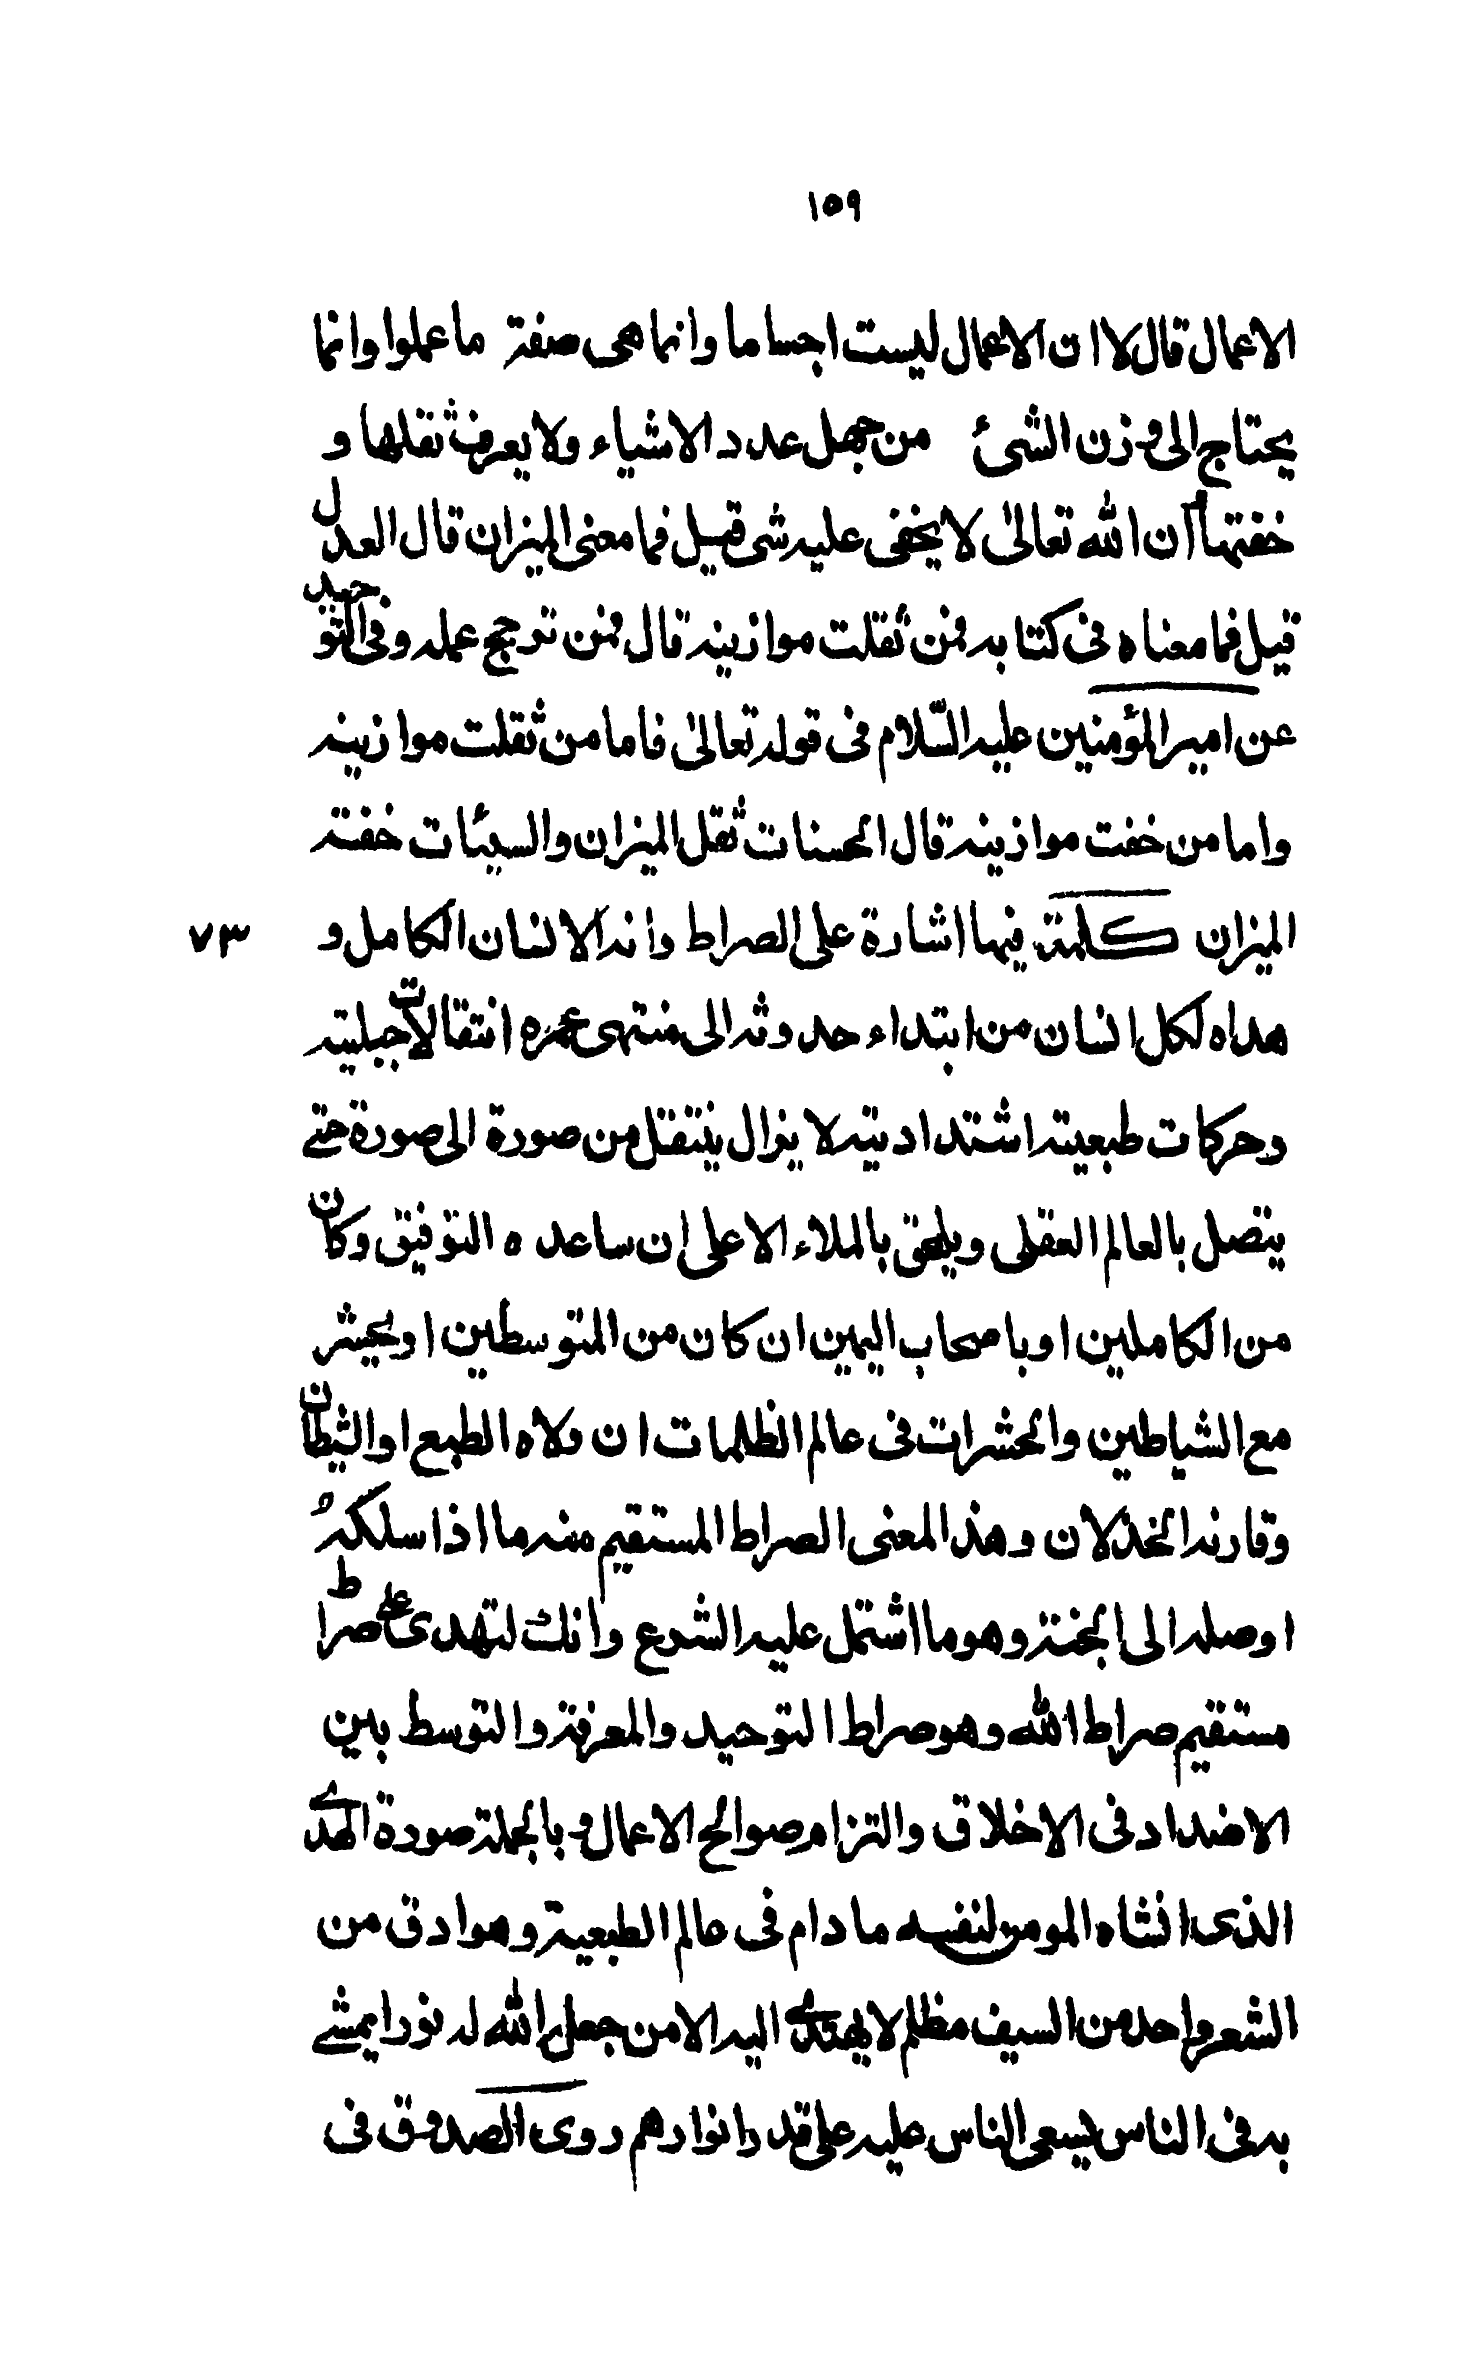 ١٥٩
الاعمال قال لا ان الاعمال ليست اجساما وانما هى صفة ما عملوا وانما
يحتاج الى وزن الشئ من جهل عدد الاشياء ولا يعرف ثقلها و
خفتها ان الله تعالىٰ لا يخفى عليه شى قيل فما معنى الميزان قال العدل
قيل فما معناه فى كتابه فمن ثقلت موازينه قال فمن ترجح عمله وفى التوحيد
عن امير المؤمنين عليه السّلام فى قوله تعالىٰ فاما من ثقلت موازينه
واما من خفت موازينه قال الحسنات ثقل الميزان والسيئات خفة
الميزان كلمة فيها اشارة على الصراط وانه الانسان الكامل و
٧٣
هداه لكل انسان من ابتداء حدوثه الى منتهى عمره انتقالات جبلية
وحركات طبعية اشتدادية لا يزال ينتقل من صورة الى صورة حتے
يتصل بالعالم العقلى ويلحق بالملاء الاعلى ان ساعده التوفيق وكان
من الكاملين او باصحاب اليمين ان كان من المتوسطين او يحيشر
مع الشياطين والحشرات فى عالم الظلمات ان ولاه الطبع او الشيطان
وقارنه الخذلان وهذا المعنى الصراط المستقيم منه ما اذا سلكه
اوصله الى الجنة وهو ما اشتمل عليه الشرع وانك لتهدى علے صراط
مستقيم صراط الله وهو صراط التوحيد والمعرفة والتوسط بين
الاضداد فى الاخلاق والتزام صوالح الاعمال وبالجملة صورة الهدے
الذى انشاه المومن لنفسه ما دام فى عالم الطبعية وهو ادق من
الشعر واحد من السيف مظلم لا يهتدے اليه الا من جعل الله له نورا يمشے
به فى الناس يسعى الناس عليه على قدر انوارهم روى الصدوق فى